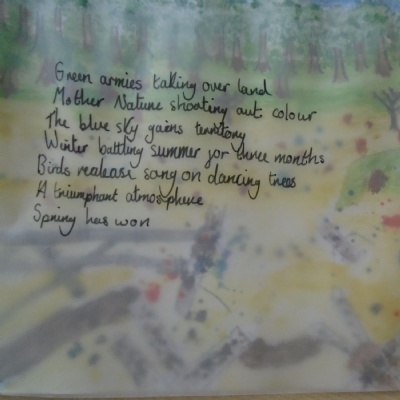 Green armies taking over land
Mother Nature shooting out colour
The blue sky gains territory
Winter battling summer for three months
Birds realease song on dancing trees
A triumphant atmosphere
Spring has won